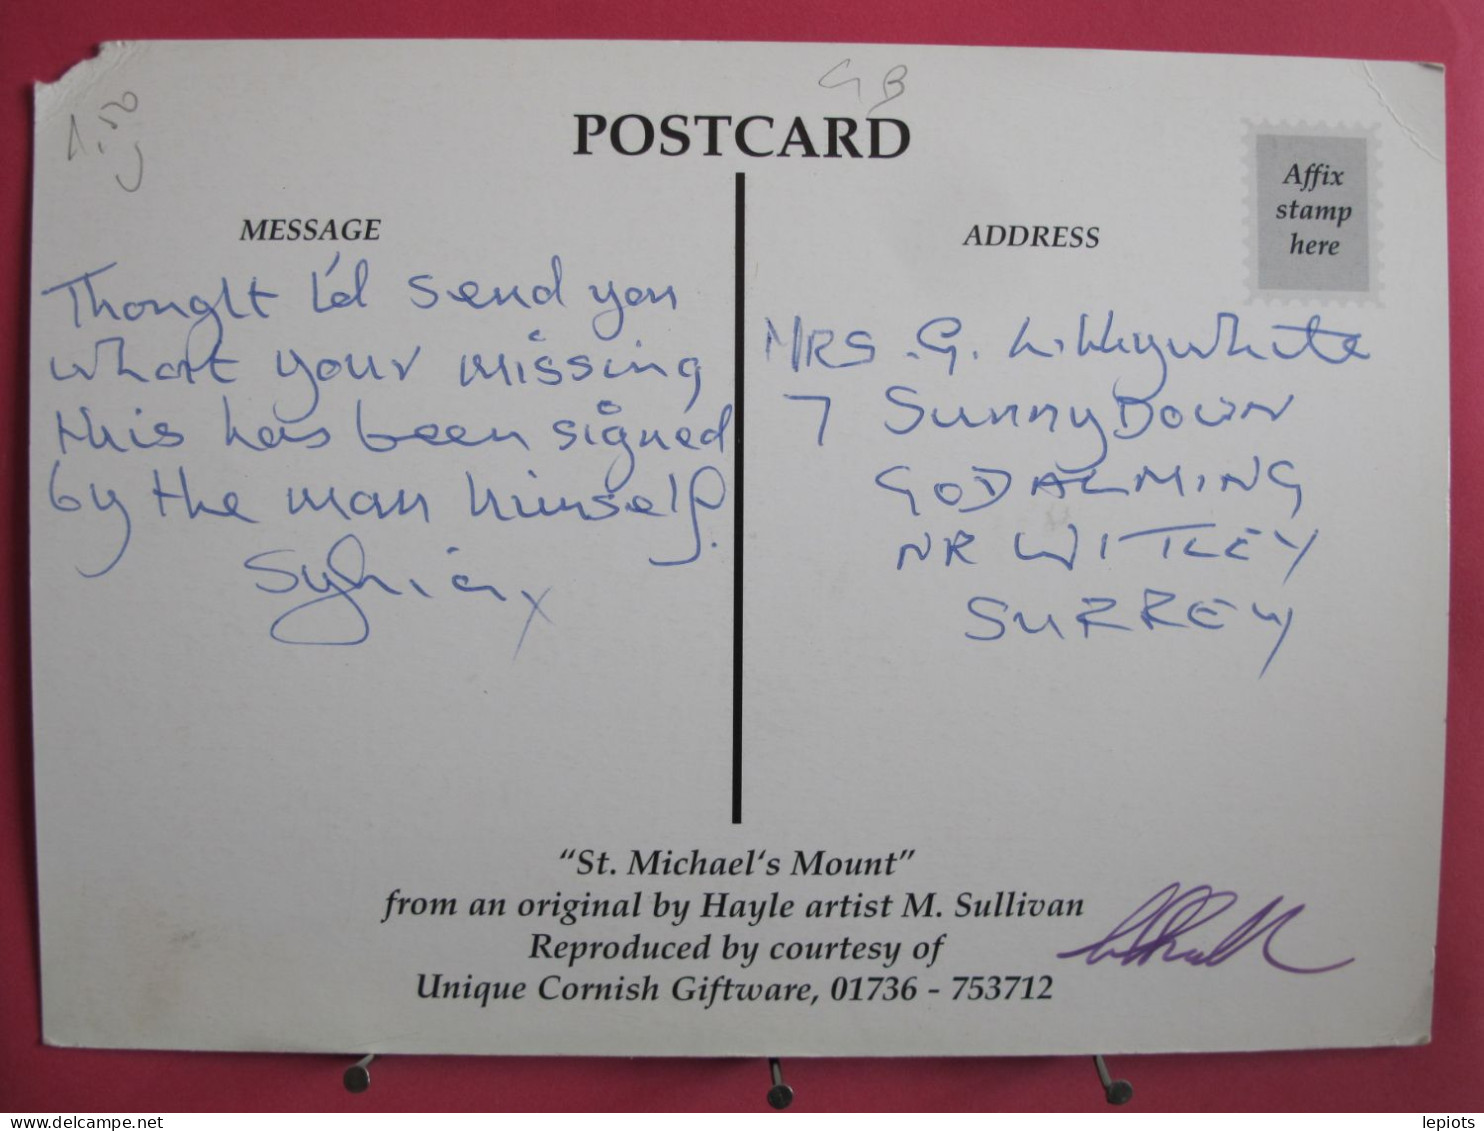 GB
1.50
POSTCARD
Affix
stamp
here
MESSAGE
ADDRESS
Thought I'd send you
what your missing
this has been signed
by the man himself.
Sylvia x
MRS. G. Lillywhite
7 Sunny Down
GODALMING
NR WITLEY
SURREY
“St. Michael‘s Mount”
from an original by Hayle artist M. Sullivan
Reproduced by courtesy of
Unique Cornish Giftware, 01736 - 753712
delcampe.net
lepiots